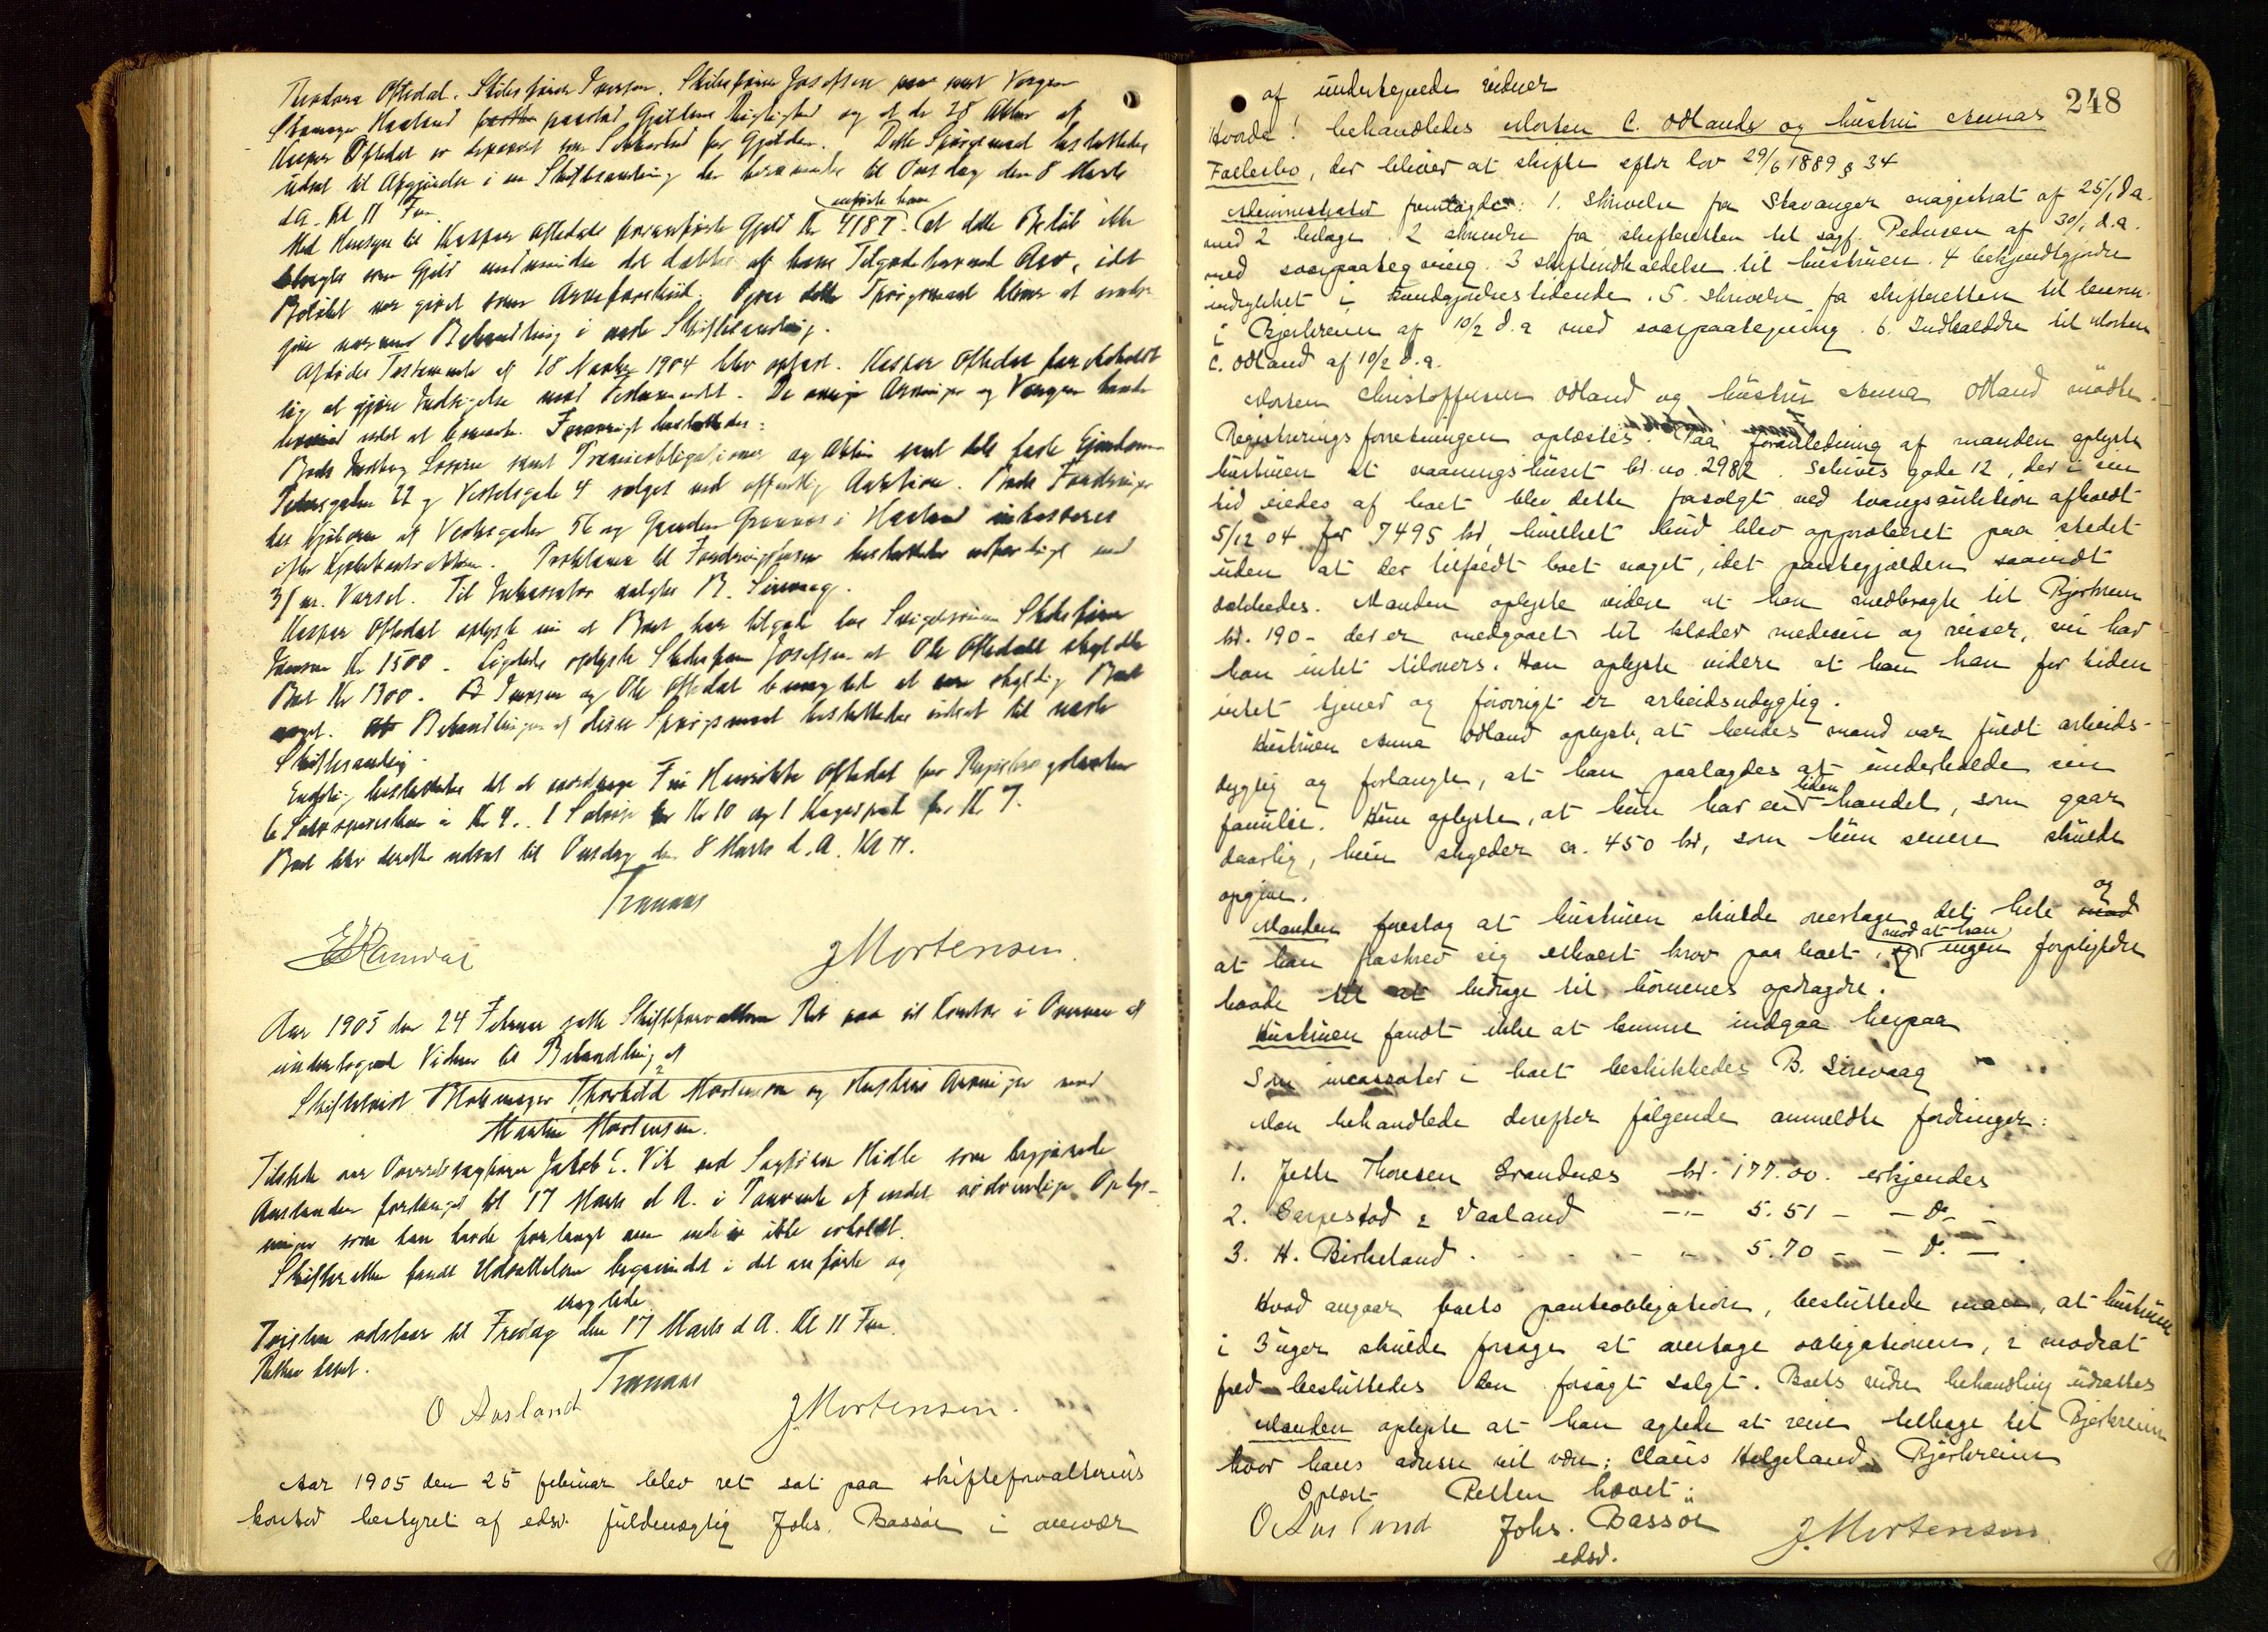 Theodora Oftedal. Skibsfører Iversen. Skibsfører Josefsen samt Vergen
Skomager Haaland paastod Gjældens Rigtighed og at de 28 Aktier af
Kasper Oftedal er deponeret som Sikkerhed for Gjælden. Dette Spørgsmaal besluttedes
udsat til Afgjørelse i en Skiftesamling der berammedes til Onsdag den 8 Marts
d.A. Kl 11 Fm.
Med Hensyn til Kaspar Oftedals foranførte Gjæld Kr 4187.- anførte han at dette Beløb ikke
som Gjæld medmindre det dækkes af hans Tilgodehavende Arv, idet
Beløbet var givet som Arveforskud. Ogsaa dette Spørgsmaal bliver at undergive
nærmere Behandling i næste Skiftesamling.
Afdødes Testamente af 18 Novbr 1904 blev oplæst. Kasper Oftedal forbeholdt
sig at gjøre Indsigelse mod Testamentet. De øvrige Arvinger og Vergen havde
intet at bemærke. Forøvrigt besluttedes:
Boets Indbo, Løsøre samt Præmieobligationer og Aktier samt dets faste Eiendomme
Pedersgaden 22 og Vestelsgade 4 sælges ved offentlig Auktion. Boets Fordringer
hos Kjøberen af Verksgaden 56 og Gaarden i Haaland inkasseres
efter Kjøbekontrakten. Proklama til Fordringshavere besluttedes udfærdiget med
3 mr. Varsel. Til Inkassator valgtes B. Sirevaag.
Kasper Oftedal oplyste nu at Boet har tilgode hos Svigersønnen Skibsfører
Iversen Kr 1500.- Ligeledes oplyste Skibsfører Josefsen at Ole Oftedal skyldte
Boet Kr 1300.- Iversen og Ole Oftedal benegtede at være skyldig Boet
noget. Behandlingen af disse Spørgsmaal besluttedes udsat til næste
Skiftesamling.
Endelig besluttedes det at Fru Henrikke Oftedal for Registreringstaksten
6 Sølvspiseskeer à Kr 4., 1 Kr 10 og 1 for Kr 7.
Boet blev derefter udsat til Onsdag den 8 Marts d.A. Kl 11.
Tranaas
E Ramdal J Mortensen.
Aar 1905 den 24 Februar satte Skifteforvalteren Ret paa sit Kontor i Overvær af
undertegnede Vidner til Behandling af
Skiftetvist Thorkild Mortensen og Hustrus Arvinger mod
Martin Mortensen.
Tilstede var Overretssagfører Jakob C. Vik ved Sagfører Hidle som begjærede
Anstanden forlænget til 17 Marts d A. i Paavente af endel nødvendige Oplys-
ninger som han havde forlangt men endnu ikke erholdt.
Skifteretten fandt Udsættelsen begrundet i det anførte og
Tvisten udstaar til Fredag den 17 Marts d A. Kl 11 Fm.
Retten hævet.
Tranaas
O Aasland J. Mortensen.
Aar 1905 den 25 februar blev ret sat paa skifteforvalterens
kontor bestyret af edsv. fuldmægtig Johs. Bassøe i overvær
248
af undertegnede vidner
Hvorda! behandledes Morten C. Odlands og hustru Annas
Fællesbo, der bliver at skifte efter lov 29/6 1889 § 34
Administrator fremlagde: 1. Skrivelse fra Stavanger magistrat af 25/1 d.a.
med 2 bilage. 2 skrivelse fra skifteretten til sagf. Pedersen af 30/1 d.a.
med svarpaategning. 3 skifteindkaldelse til hustruen. 4 bekjendtgjørelse
indrykket i kundgjørelsestidende. 5. Skrivelse fra skifteretten til lensm.
i Bjerkreim af 10/2 d.a med svarpaategning. 6. Indkaldelse til Morten
C. Odland af 10/2 d.a.
Morten Christoffersen Odland og hustru Anna Odland mødte.
Registreringsforretningen oplæstes. Paa foranledning af manden oplyste
hustruen at vaaningshuset br. no. 2982. Schives gade 12, der i sin
tid eiedes af boet blev dette frasolgt ved tvangsauktion afholdt
5/12 04 for 7495 kr, hvilket bud blev approberet paa stedet
uden at der tilfaldt boet noget, idet pantegjælden saavidt
dækkedes. Manden oplyste videre at han medbragte til Bjerkreim
kr. 190.- der er medgaaet til klæder medicin og reiser, nu har
han intet tilovers. Han oplyste videre at han han for tiden
intet tjener og forøvrigt er arbeidsudygtig.
Hustruen Anna Odland oplyste, at hendes mand var fuldt arbeids-
dygtig og forlangte, at han paalagdes at underholde sin
familie. Hun oplyste, at hun har en liden handel, som gaar
daarlig, hun skylder ca. 450 kr, som hun senere skulde
opgive.
Manden foreslog at hustruen skulde overtage det hele og
at han fraskrev sig ethvert krav paa boet, mod at han ingen forpligtelse
havde til at bidrage til børnenes opdragelse.
Hustruen fandt ikke at kunne indgaa herpaa
Som incassator i boet beskikkedes B. Sirevaag
Man behandlede derefter følgende anmeldte fordringer:
1. Jelle Thoresen Grandnæs kr. 177.00. erkjendes
2. Gargestad & Vaaland -"- 5.51 - - d. -
3. H. Birkeland. - - - " 5.70 - - d. - .
Hvad angaar boets panteobligation, besluttede man, at hustruen
i 3 uger skulde forsøge at overtage obligationen, i modsat
fald besluttedes den forsøgt solgt. Boets videre behandling udsattes
Manden oplyste at han agtede at reise tilbage til Bjerkreim
hvor hans adresse vil være: Claus Helgeland, Bjerkreim
Oplæst Retten hævet:
O Aasland Johs. Bassøe J. Mortensen
edsv.